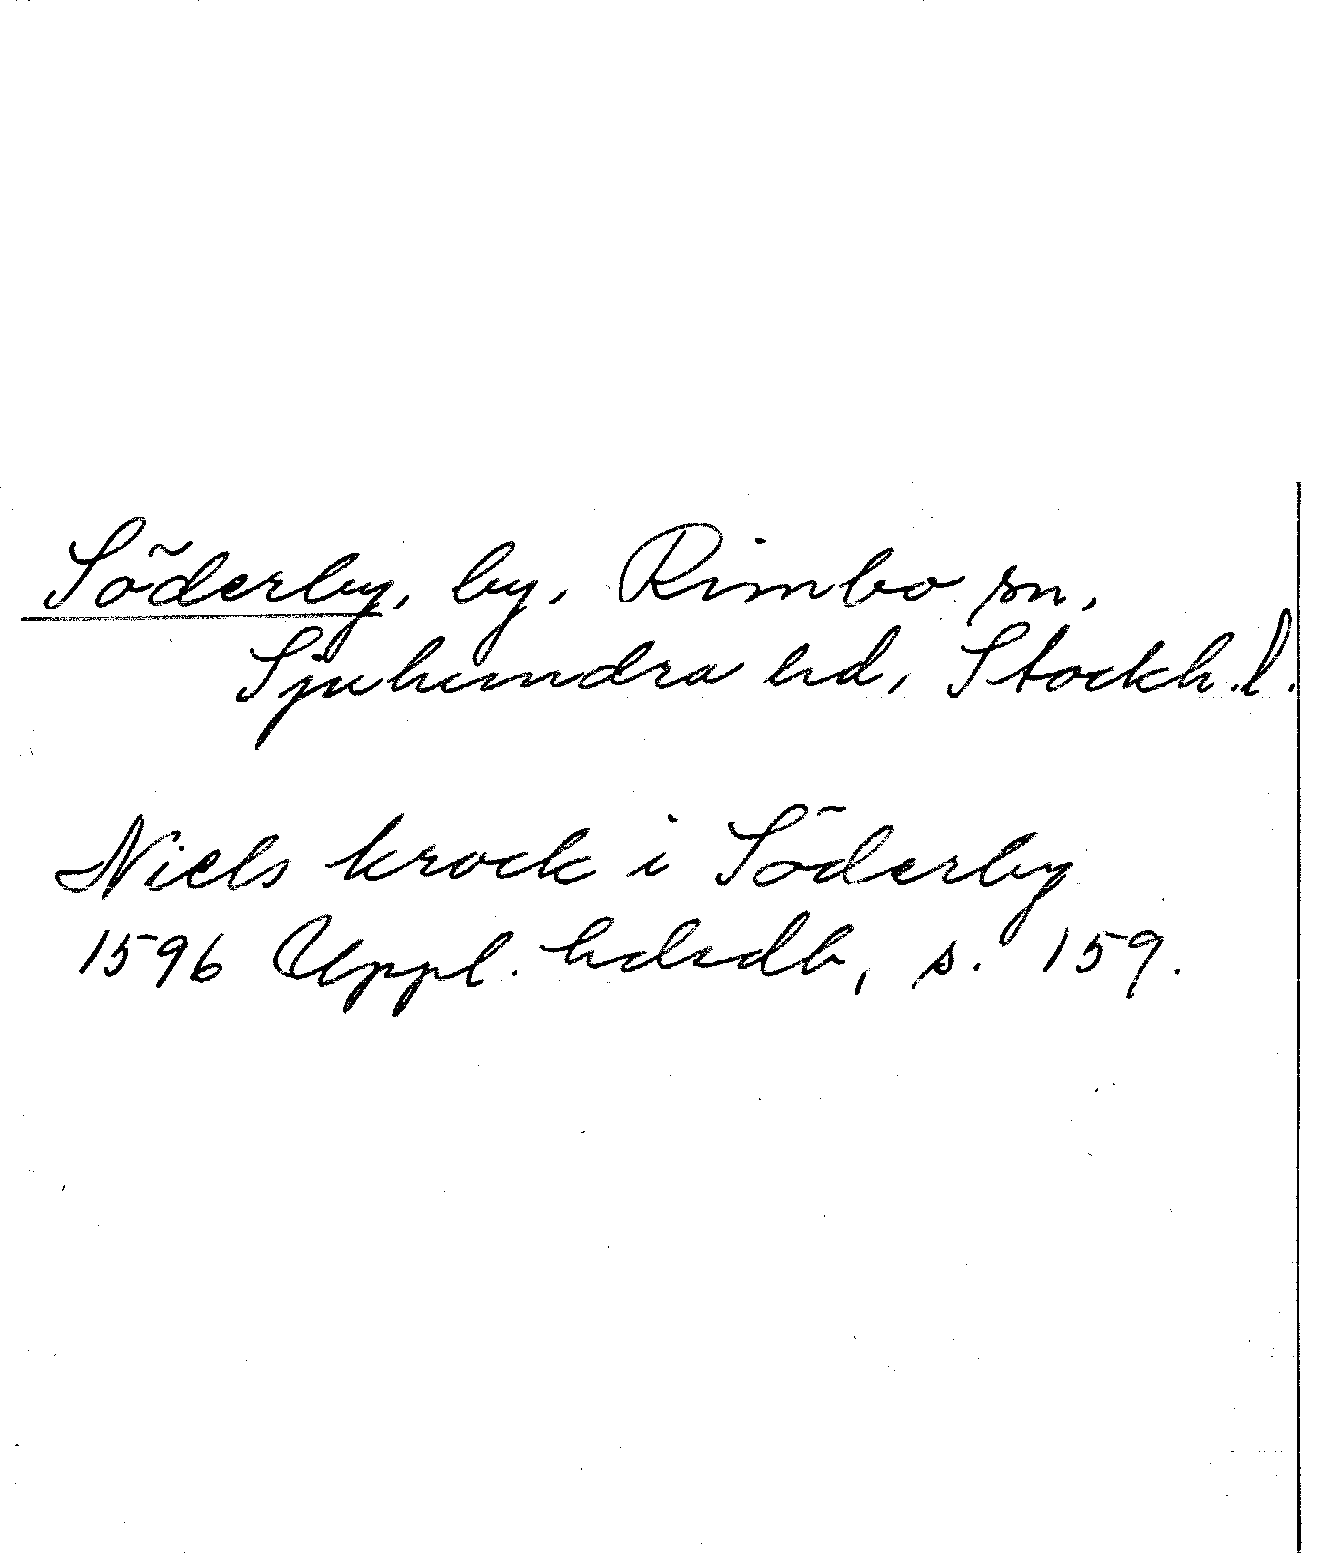 Söderby, by, Rimbo sn,
Sjuhundra hd, Stockh.l.
Niels krock i Söderby
1596 Uppl. hdsdb, s. 159.